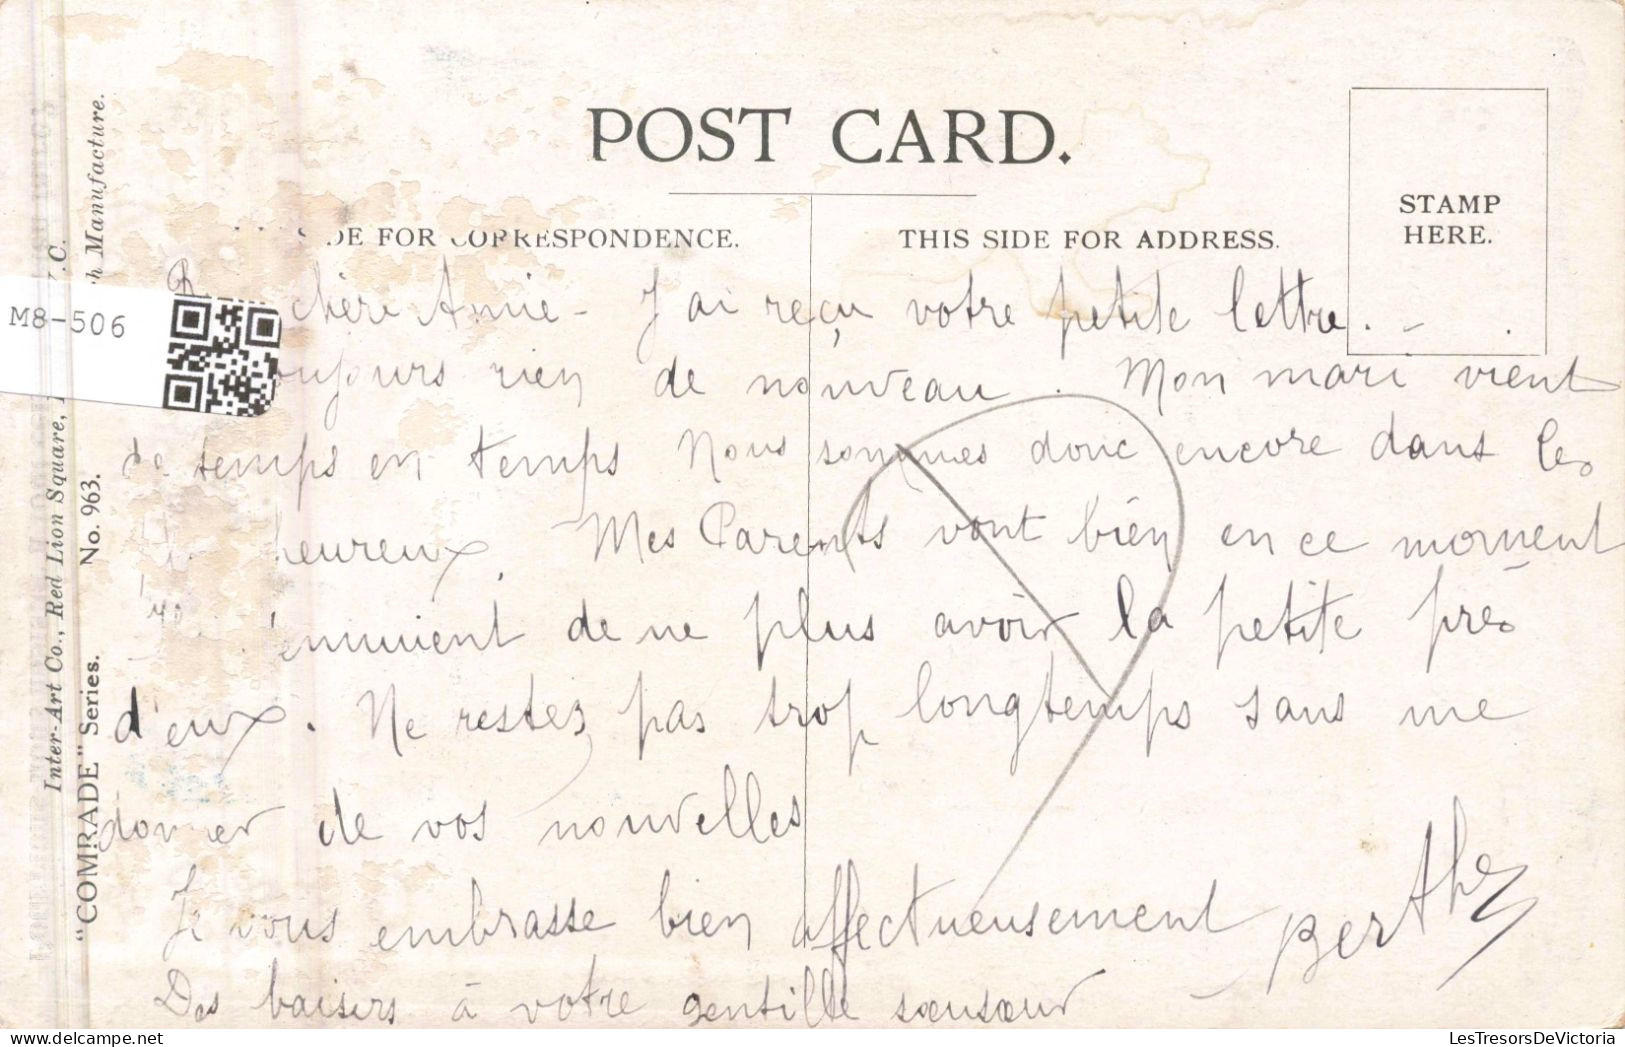 POST CARD.
STAMP
HERE.
DE FOR CORRESPONDENCE.
THIS SIDE FOR ADDRESS.
chère Amie - J'ai reçu votre petite lettre. -
oujours rien de nouveau. Mon mari vient
de temps en temps Nous sommes donc encore dans les
heureux. Mes Parents vont bien en ce moment
ennuient de ne plus avoir la petite près
d'eux. Ne restez pas trop longtemps sans me
donner de vos nouvelles
Je vous embrasse bien affectueusement
Berthe
Des baisers à votre gentille sœusœur
Inter-Art Co., Red Lion Square,
.C.
h Manufacture.
"COMRADE" Series. No. 963.
M8-506
LesTresorsDeVictoria